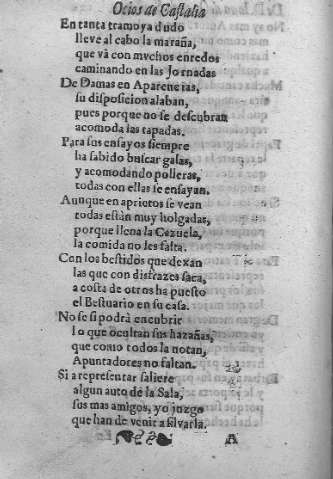 Ocios de Castalia
En tanta tramoya dudo
lleve al cabo la maraña,
que và con muchos enredos
caminando en las Jornadas
De Damas en Aparencias,
su disposicion alaban,
pues porque no se descubran
acomoda las tapadas.
Para sus ensayos siempre
ha sabido buscar galas,
y acomodando polleras,
todas con ellas se ensayan.
Aunque en aprietos se vean
todas están muy holgadas,
porque llena la Cazuela,
la comida no les falta.
Con los bestidos que dexan
las que con disfrazes saca,
a costa de otros ha puesto
el Bestuario en su casa.
No se si podrà encubrir
lo que ocultan sus hazañas,
que como todos la notan,
Apuntadores no faltan.
Si a representar saliere
algun auto de la Sala,
sus mas amigos, yo juzgo
que han de venir a silvarla.
A